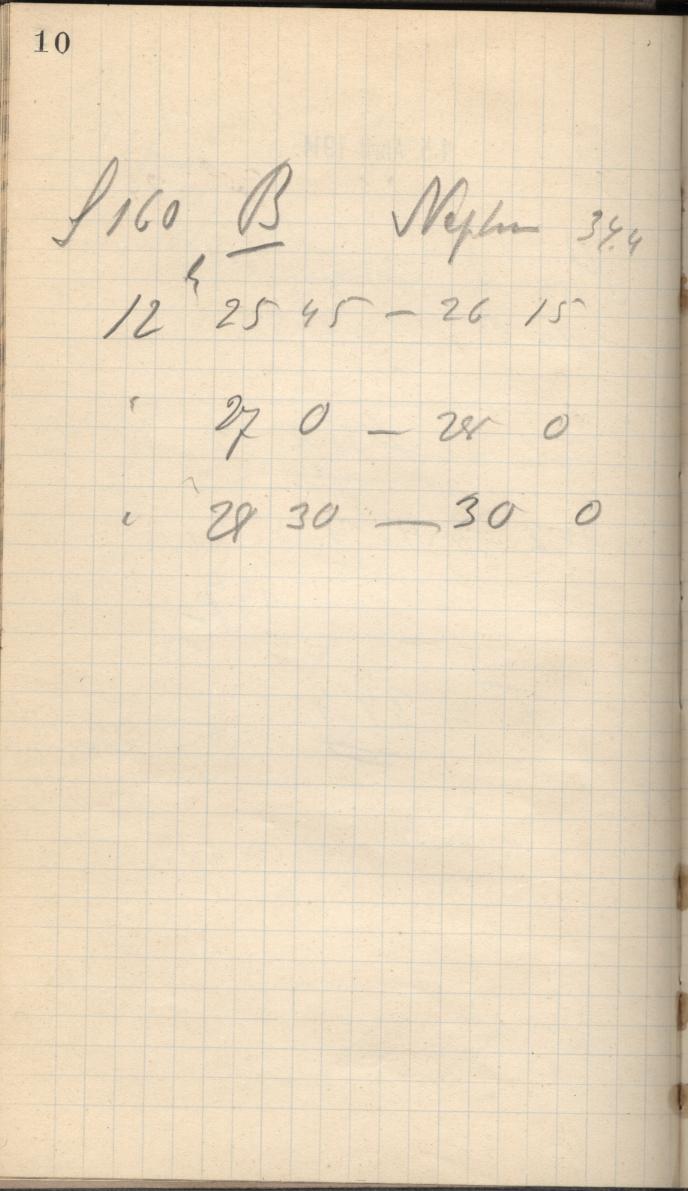 10
S 160 B Neptun 34.4
12 h 25 45 – 26 15
" 27 0 – 28 0
" 29 30 – 30 0